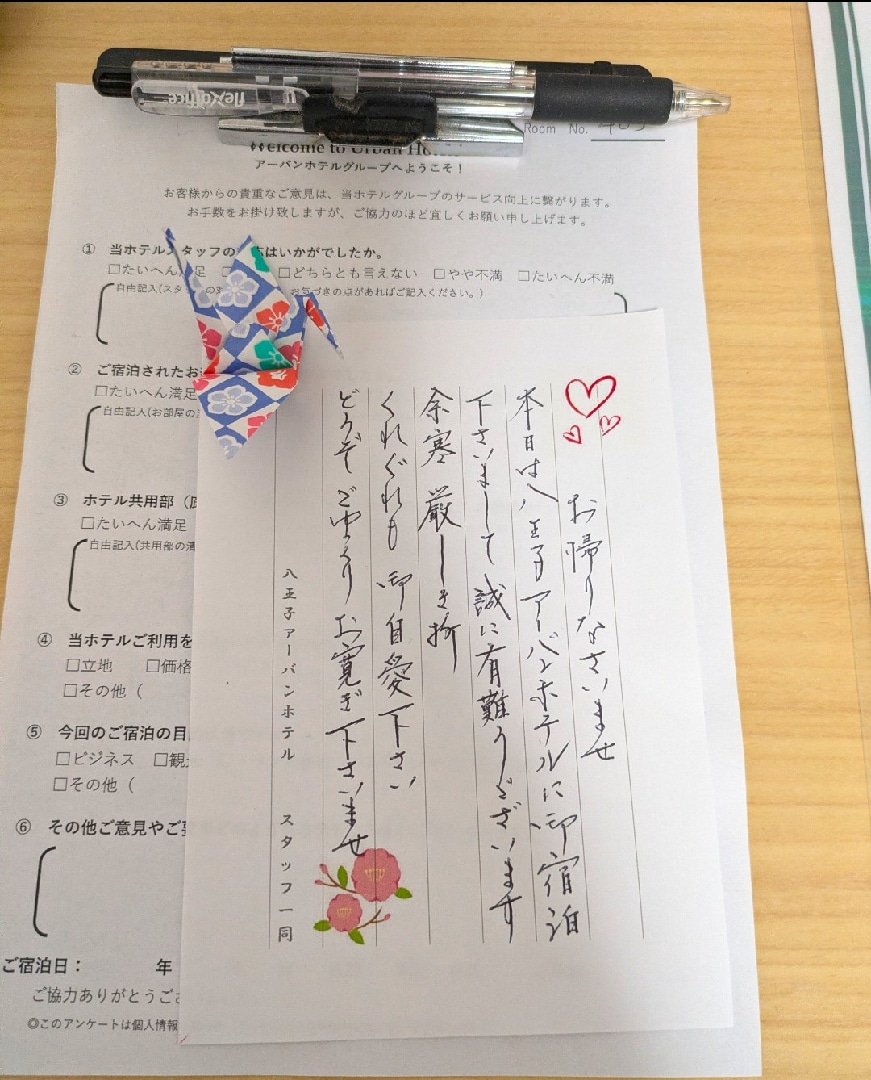 flexoffice
Room No.
Welcome to Urban Hotel
アーバンホテルグループへようこそ！
お客様からの貴重なご意見は、当ホテルグループのサービス向上に繋がります。
お手数をお掛け致しますが、ご協力のほど宜しくお願い申し上げます。
① 当ホテルスタッフの はいかがでしたか。
□たいへん 足 □どちらとも言えない □やや不満 □たいへん不満
自由記入(スタ お気づきの点があればご記入ください。)
② ご宿泊されたお
□たいへん満足
自由記入(お部屋の
③ ホテル共用部（
□たいへん満足
自由記入(共用部の
④ 当ホテルご利用を
□立地 □価格
□その他（
⑤ 今回のご宿泊の目
□ビジネス □観
□その他（
⑥ その他ご意見やご
ご宿泊日： 年
ご協力ありがとうご
◎このアンケートは個人情報
お帰りなさいませ
本日は八王子アーバンホテルに御宿泊
下さいまして誠に有難うございます
余寒厳しき折
くれぐれも御自愛下さい
どうぞごゆるりお寛ぎ下さいませ
八王子アーバンホテル スタッフ一同